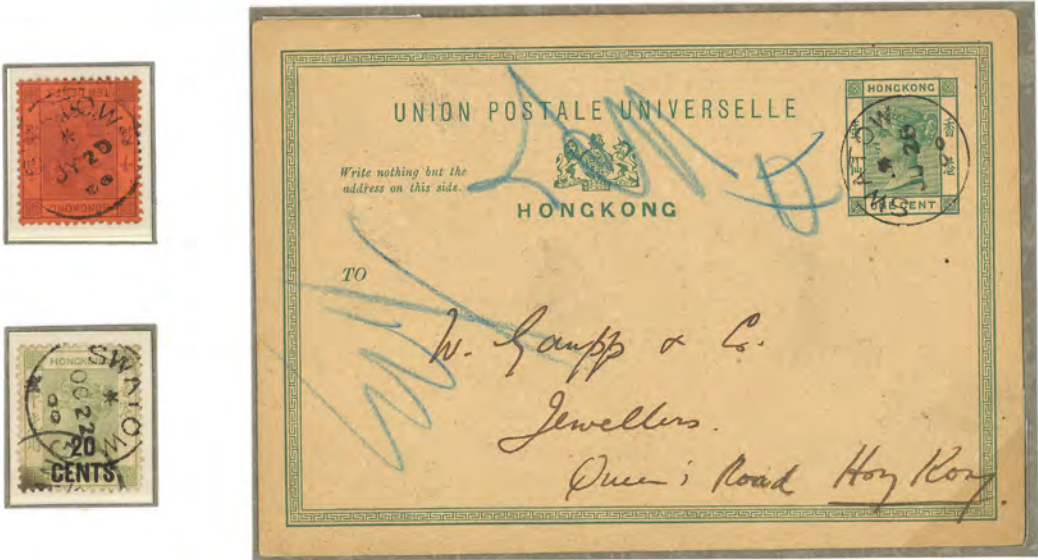 HONGKONG
SWATOW
JY 20
TEN CENTS
HONGKONG
SWATOW
OC 22
00
20
CENTS
UNION POSTALE UNIVERSELLE
Write nothing but the
address on this side.
HONGKONG
HONGKONG
SWATOW
ONE CENT
TO
W. Gaupp & Co.
Jewellers.
Queen's Road Hong Kong.